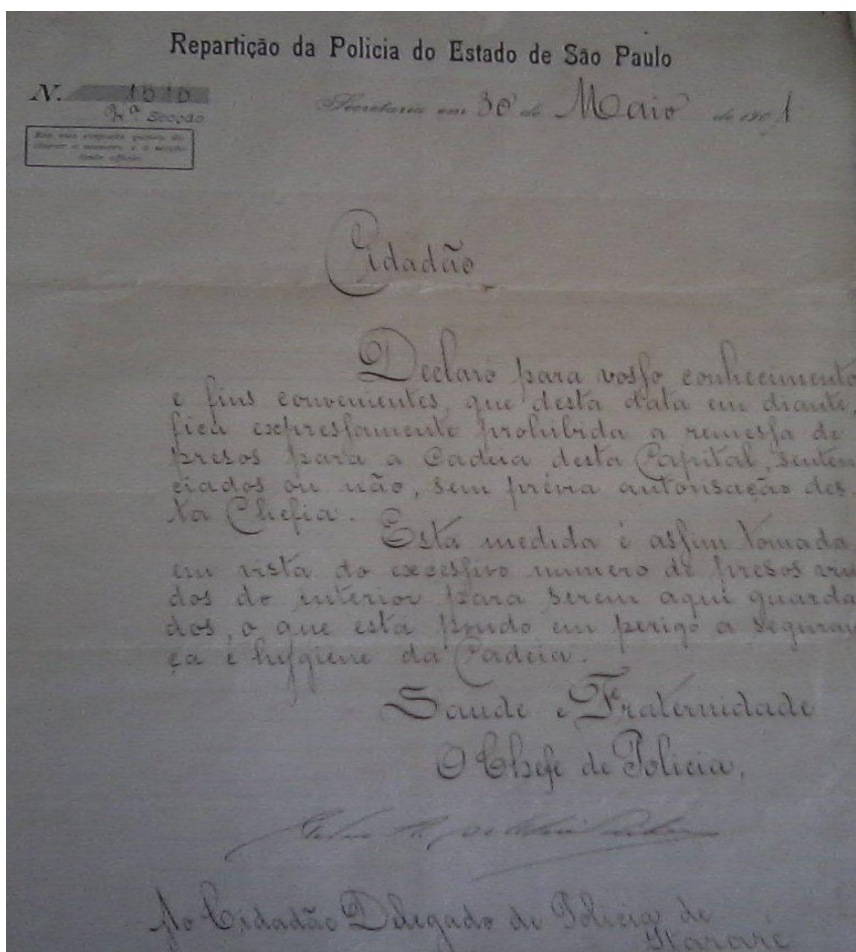 Repartição da Policia do Estado de São Paulo
N. 1010
Secção
Secretaria em 30 de Maio de 1901
Em sua resposta queira de-
clarar o numero e a secção
deste officio
Cidadão
Declaro para vosso conhecimento
e fins convenientes, que desta data em diante,
fica expressamente prohibida a remessa de
presos para a Cadeia desta Capital, senten
ciados ou não, sem prévia autorisação des-
ta Chefia.
Esta medida é assim tomada
em vista do excessivo numero de presos vin
dos do interior para serem aqui guarda
dos, o que está pondo em perigo a seguran
ça e hygiene da Cadeia.
Saude e Fraternidade
O Chefe de Policia,
Ao Cidadão Delegado de Policia de
Itararé